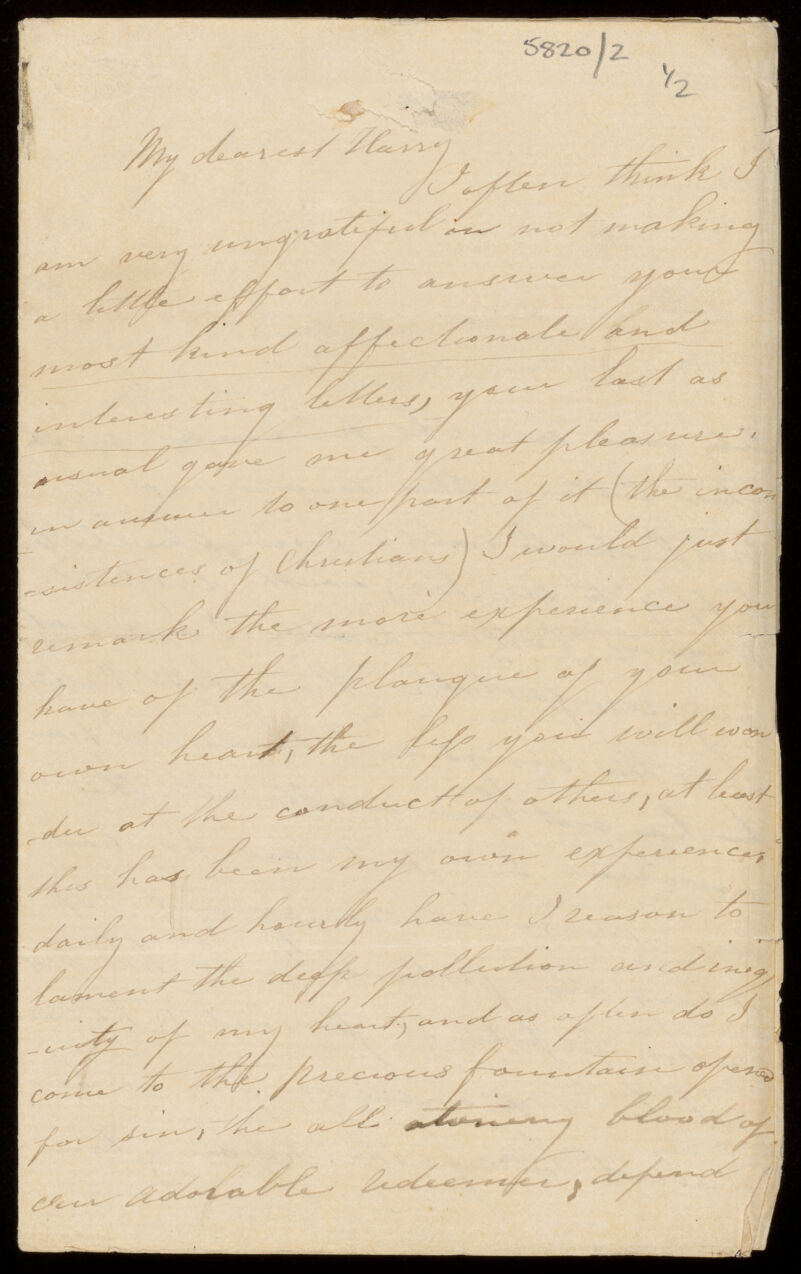 5820/2
1/2
My dearest Harry
I often think I
am very ungrateful in not making
a little effort to answer your
most kind affectionate and
interesting letters, your last as
usual gave me great pleasure,
in answer to one part of it (the incon
-sistences of Christians) I would just
remark the more experience you
have of the plaugue of your
own heart, the less you will won
-der at the conduct of others, at least
this has been my own experience,
daily and hourly have I reason to
lament the deep pollution and iniq
-uity of my heart, and as often do I
come to the precious fountain opened
for sin, the all atoneing blood of
our adorable redeemer, depend